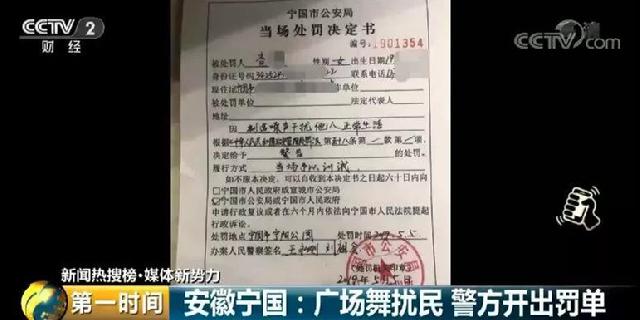 CCTV 2
财经
CCTV
宁国市公安局
当场处罚决定书
编号:1901354
被处罚人 查 性别 女 出生日期
身份证号码 342524 联系电话
现住址 单位
被处罚单位 法定代表人
地址
因 制造噪声干扰他人正常生活
根据《中华人民共和国治安管理处罚法》第五十八条第 款第 项,
决定给予 警告 的处罚。
履行方式 当场予以训诫
如不服本决定,可以自收到本决定书之日起六十日内向
宁国市人民政府或宣城市公安局
宁国市公安局或宁国市人民政府
申请行政复议或者在六个月内依法向宁国市人民法院提起
行政诉讼。
处罚地点 处罚时间
办案人民警察签名
新闻热搜榜·媒体新势力
第一时间
安徽宁国:广场舞扰民 警方开出罚单